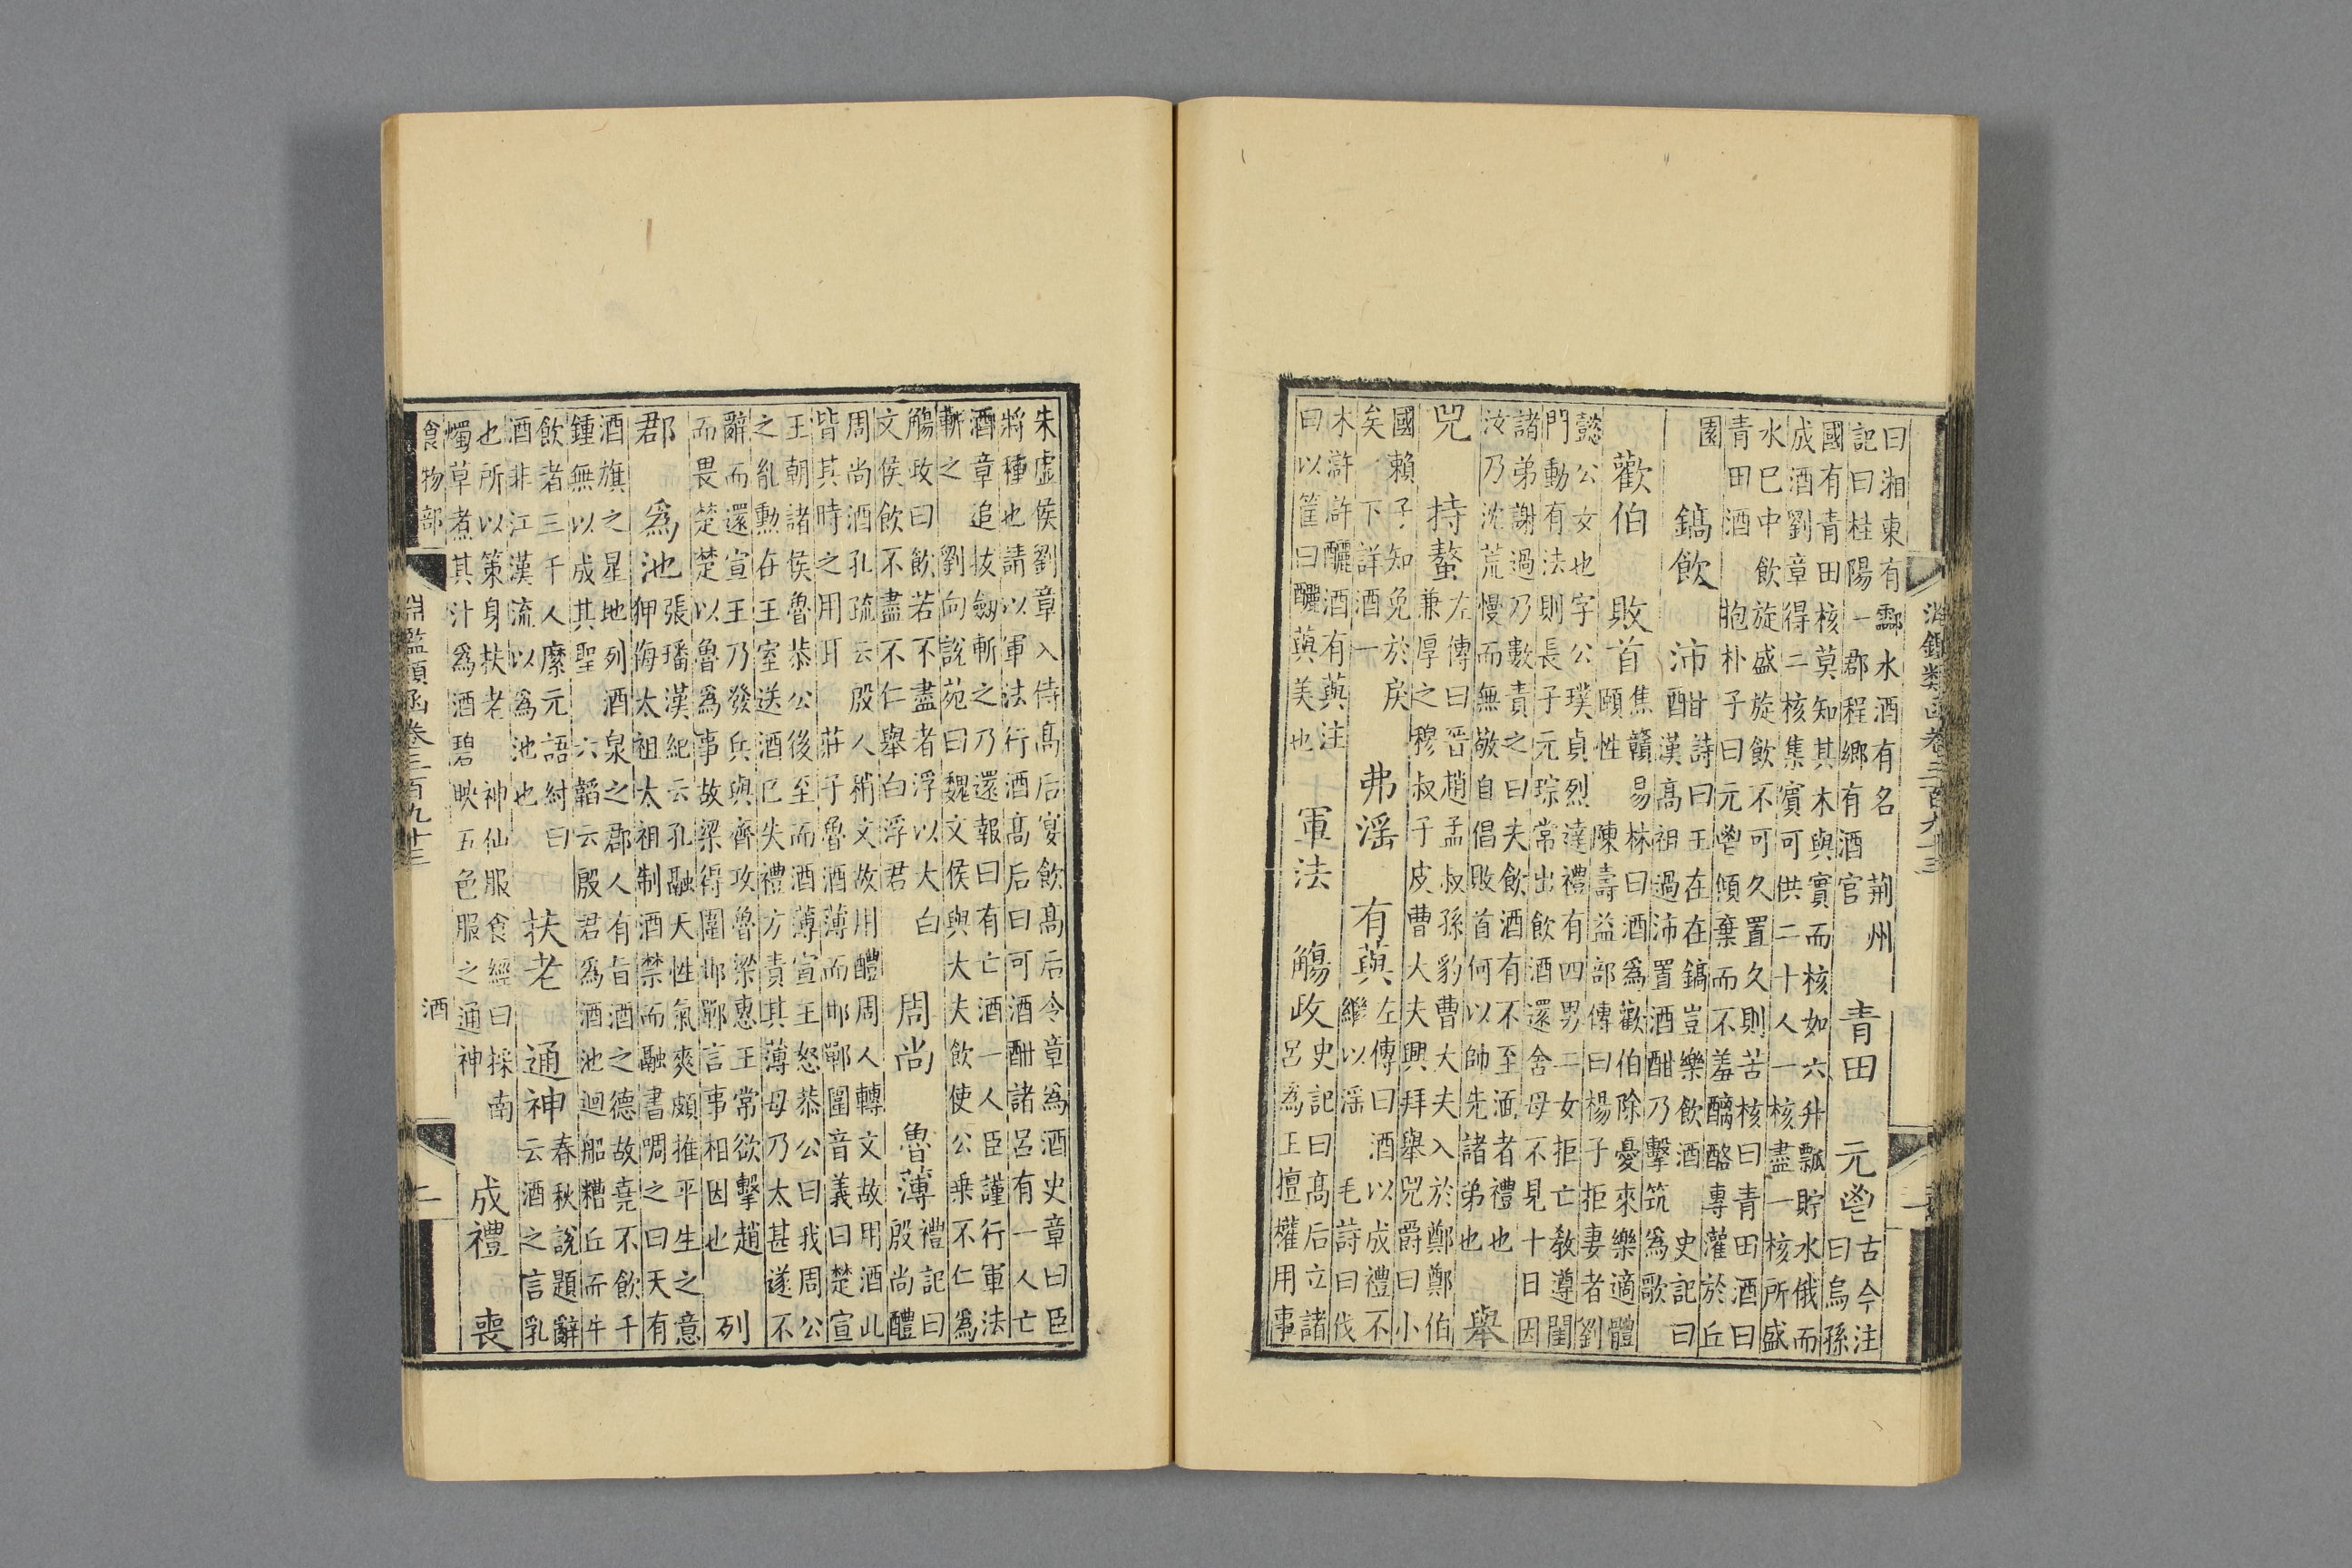 淵鑑類函卷三百九十三 二
曰湘東有酃水酒有名 荆州
記曰桂陽一郡程鄉有酒官
青田 元鬯
古今注
曰烏孫
國有青田核莫知其木與實而核如六升瓢貯水俄而
成酒劉章得二核集賓可供二十人一核盡一核所盛
水巳中飲旋盛旋飲不可久置久則苦核曰青田酒曰
青田酒 抱朴子曰元鬯傾棄而不羞醨酪專灌於丘
園
鎬飲 沛酣
詩曰王在在鎬豈樂飲酒 史記曰
漢高祖過沛置酒酣乃擊筑爲歌
歡伯 敗首
焦贛易林曰酒爲歡伯除憂來樂適體
頤性 陳壽益部傳曰楊子拒妻者劉
懿公女也字公璞貞烈達禮有四男二女拒亡教遵閨
門動有法則長子元琮常出飲酒還舍母不見十日因
諸弟謝過乃數責之曰夫飲酒有不至湎者禮也
汝乃沈荒慢而無敬自倡敗首何以帥先諸弟也
舉
兕 持螯
左傳曰晉趙孟叔孫豹曹大夫入於鄭鄭伯
兼厚之穆叔子皮曹大夫興拜舉兕爵曰小
國賴子知免於戾
矣 下詳酒一
弗滛 有藇
左傳曰酒以成禮不
繼以滛 毛詩曰伐
木滸滸釃酒有藇注
曰以筐曰釃藇美也
軍法 觴政
史記曰高后立諸
呂爲王擅權用事
朱虛侯劉章入侍高后宴飲高后令章爲酒史章曰臣
將種也請以軍法行酒高后曰可酒酣諸呂有一人亡
酒章追拔劔斬之乃還報曰有亡酒一人臣謹行軍法
斬之 劉向說苑曰魏文侯與大夫飲使公乗不仁爲
觴政曰飲若不盡者浮以大白
文侯飲不盡不仁舉白浮君
周尚 魯薄
禮記曰
殷尚醴
周尚酒孔疏云殷人稍文故用醴周人轉文故用酒此
皆其時之用耳 莊子魯酒薄而邯鄲圍音義曰楚宣
王朝諸侯魯恭公後至而酒薄宣王怒恭公曰我周公
之亂勳在王室送酒已失禮方責其薄毋乃太甚遂不
辭而還宣王乃發兵與齊攻魯梁惠王常欲擊趙
而畏楚楚以魯爲事故梁得圍邯鄲言事相因也
列
郡 爲池
張璠漢紀云孔融天性氣爽頗推平生之意
狎侮太祖太祖制酒禁而融書啁之曰天有
酒旗之星地列酒泉之郡人有旨酒之德故堯不飲千
鍾無以成其聖 六韜云殷君爲酒池迴船糟丘而牛
飲者三千人縻元語紂曰
酒非江漢流以爲池也
扶老 通神
春秋說題辭
云酒之言乳
也所以策身扶老 神仙服食經曰採南
燭草煮其汁爲酒碧映五色服之通神
成禮 喪
食物部 酒
淵鑑類函卷三百九十三 二